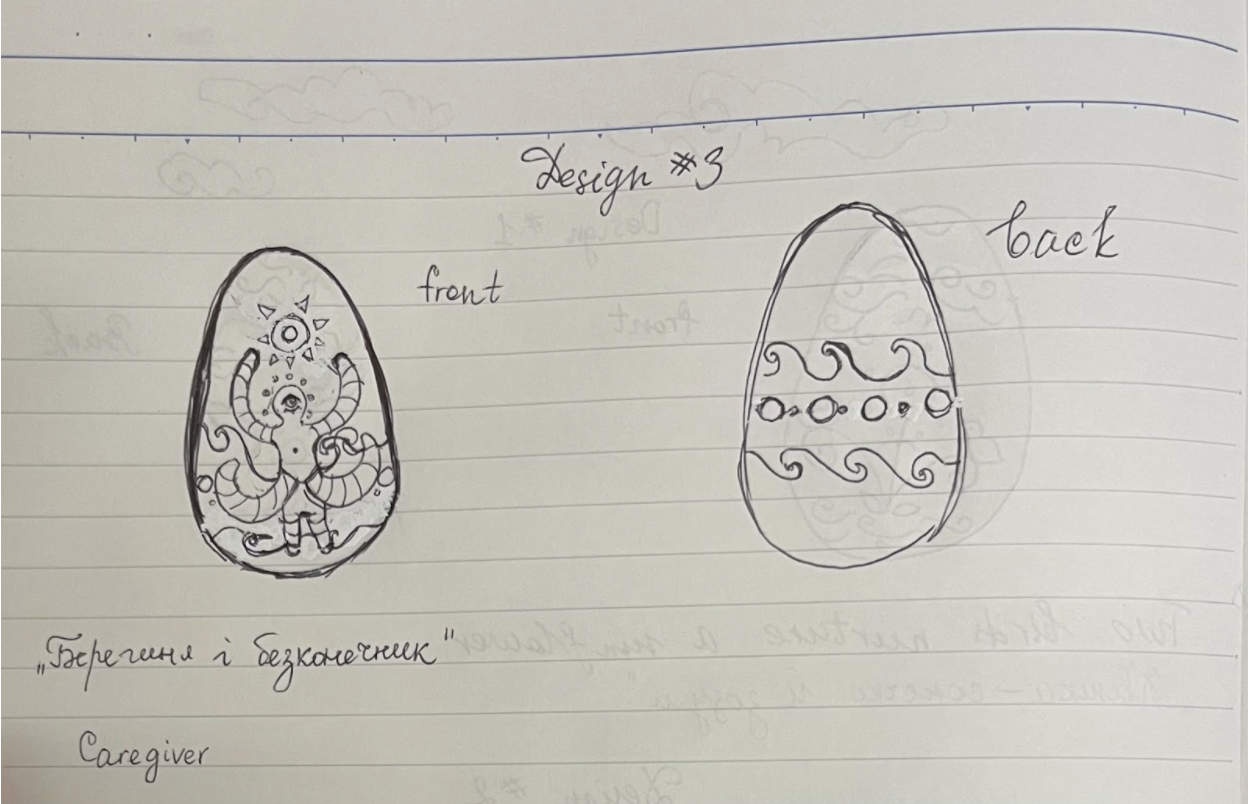 Design #3
front
back
„Берегиня і безконечник"
Caregiver